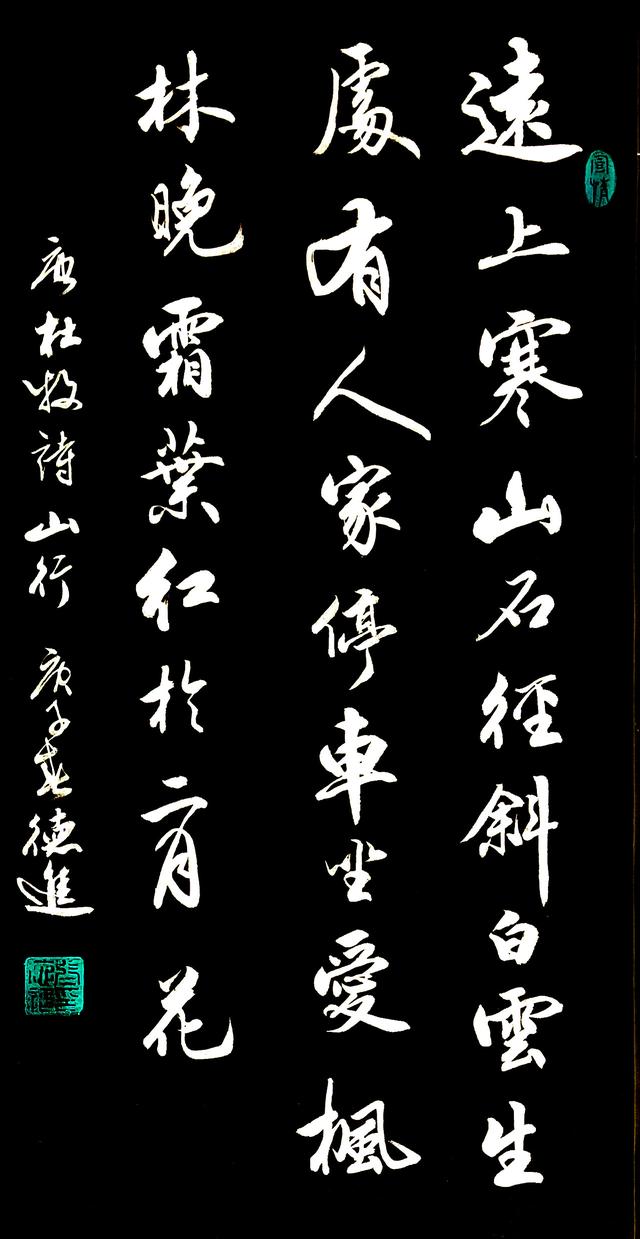 遠上寒山石徑斜白雲生
處有人家停車坐愛楓
林晚霜葉紅於二月花
唐杜牧詩山行 庚子春德進